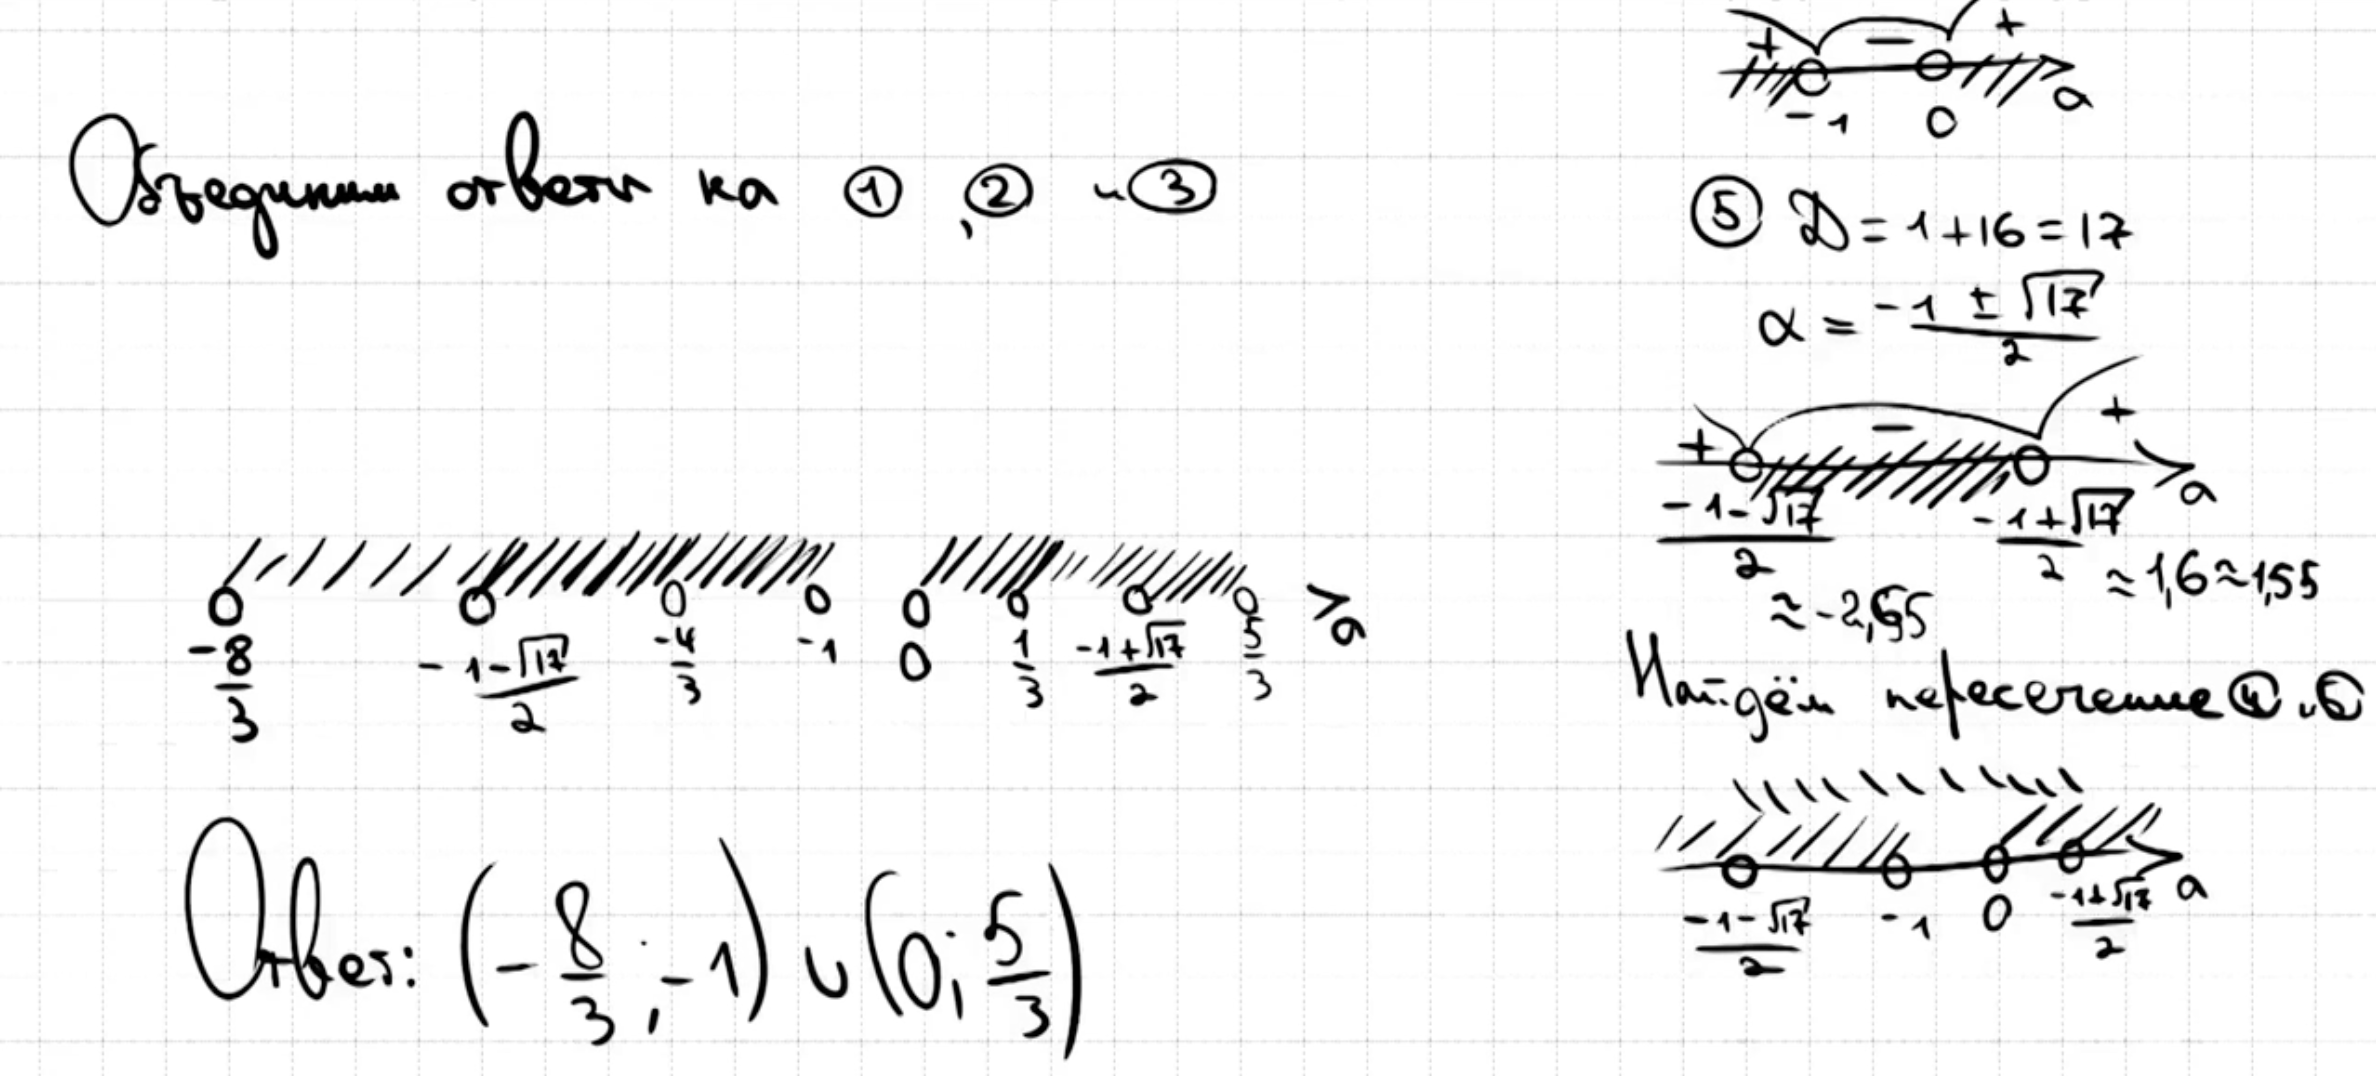 Объединим ответы на ① , ② и ③
-8/3 -1-√17/2 -4/3 -1 0 1/3 -1+√17/2 5/3 a
Ответ: (-8/3; -1) ∪ (0; 5/3)
+ - +
-1 0 a
⑤ D = 1+16 = 17
a = -1 ± √17/2
+ - +
-1-√17/2 -1+√17/2 a
≈ -2,55 ≈ 1,6 ≈ 1,55
Найдём пересечение ④ и ⑤
-1-√17/2 -1 0 -1+√17/2 a